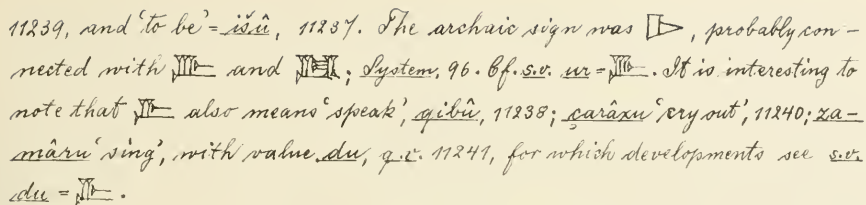 11239, and 'to be' = išû, 11237. The archaic sign was , probably con-
nected with and ; System, 96. Cf. s.v. ur = . It is interesting to
note that also means 'speak', qibû, 11238; çarâxu 'cry out', 11240; za-
mâru 'sing', with value du, q.v. 11241, for which developments see s.v.
du = .